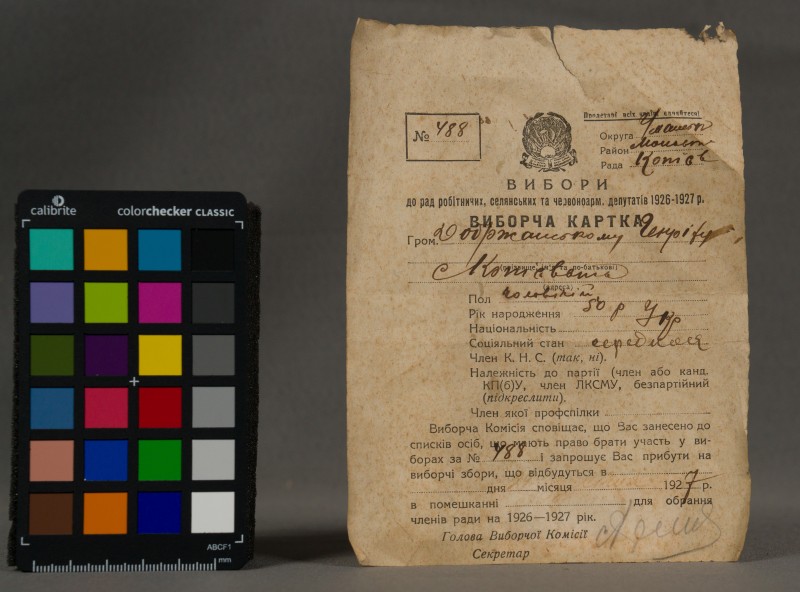 calibrite colorchecker CLASSIC
ABCF1
mm
Пролетарі всіх країн єднайтеся!
№ 488
Округа
Район
Рада
ВИБОРИ
до рад робітничих, селянських та червоноарм. депутатів 1926-1927 р.
ВИБОРЧА КАРТКА
Гром. Добржанському
(прізвище, ім'я та по-батькові)
(адреса)
Пол
Рік народження 50 р
Національність Укр
Соціяльний стан середняк
Член К. Н. С. (так, ні).
Належність до партії (член або канд.
КП(б)У, член ЛКСМУ, безпартійний
(підкреслити).
Член якої профспілки
Виборча Комісія сповіщає, що Вас занесено до
списків осіб, що мають право брати участь у ви-
борах за № 488 і запрошує Вас прибути на
виборчі збори, що відбудуться в
дня місяця 1927 р.
в помешканні для обрання
членів ради на 1926—1927 рік.
Голова Виборчої Комісії
Секретар